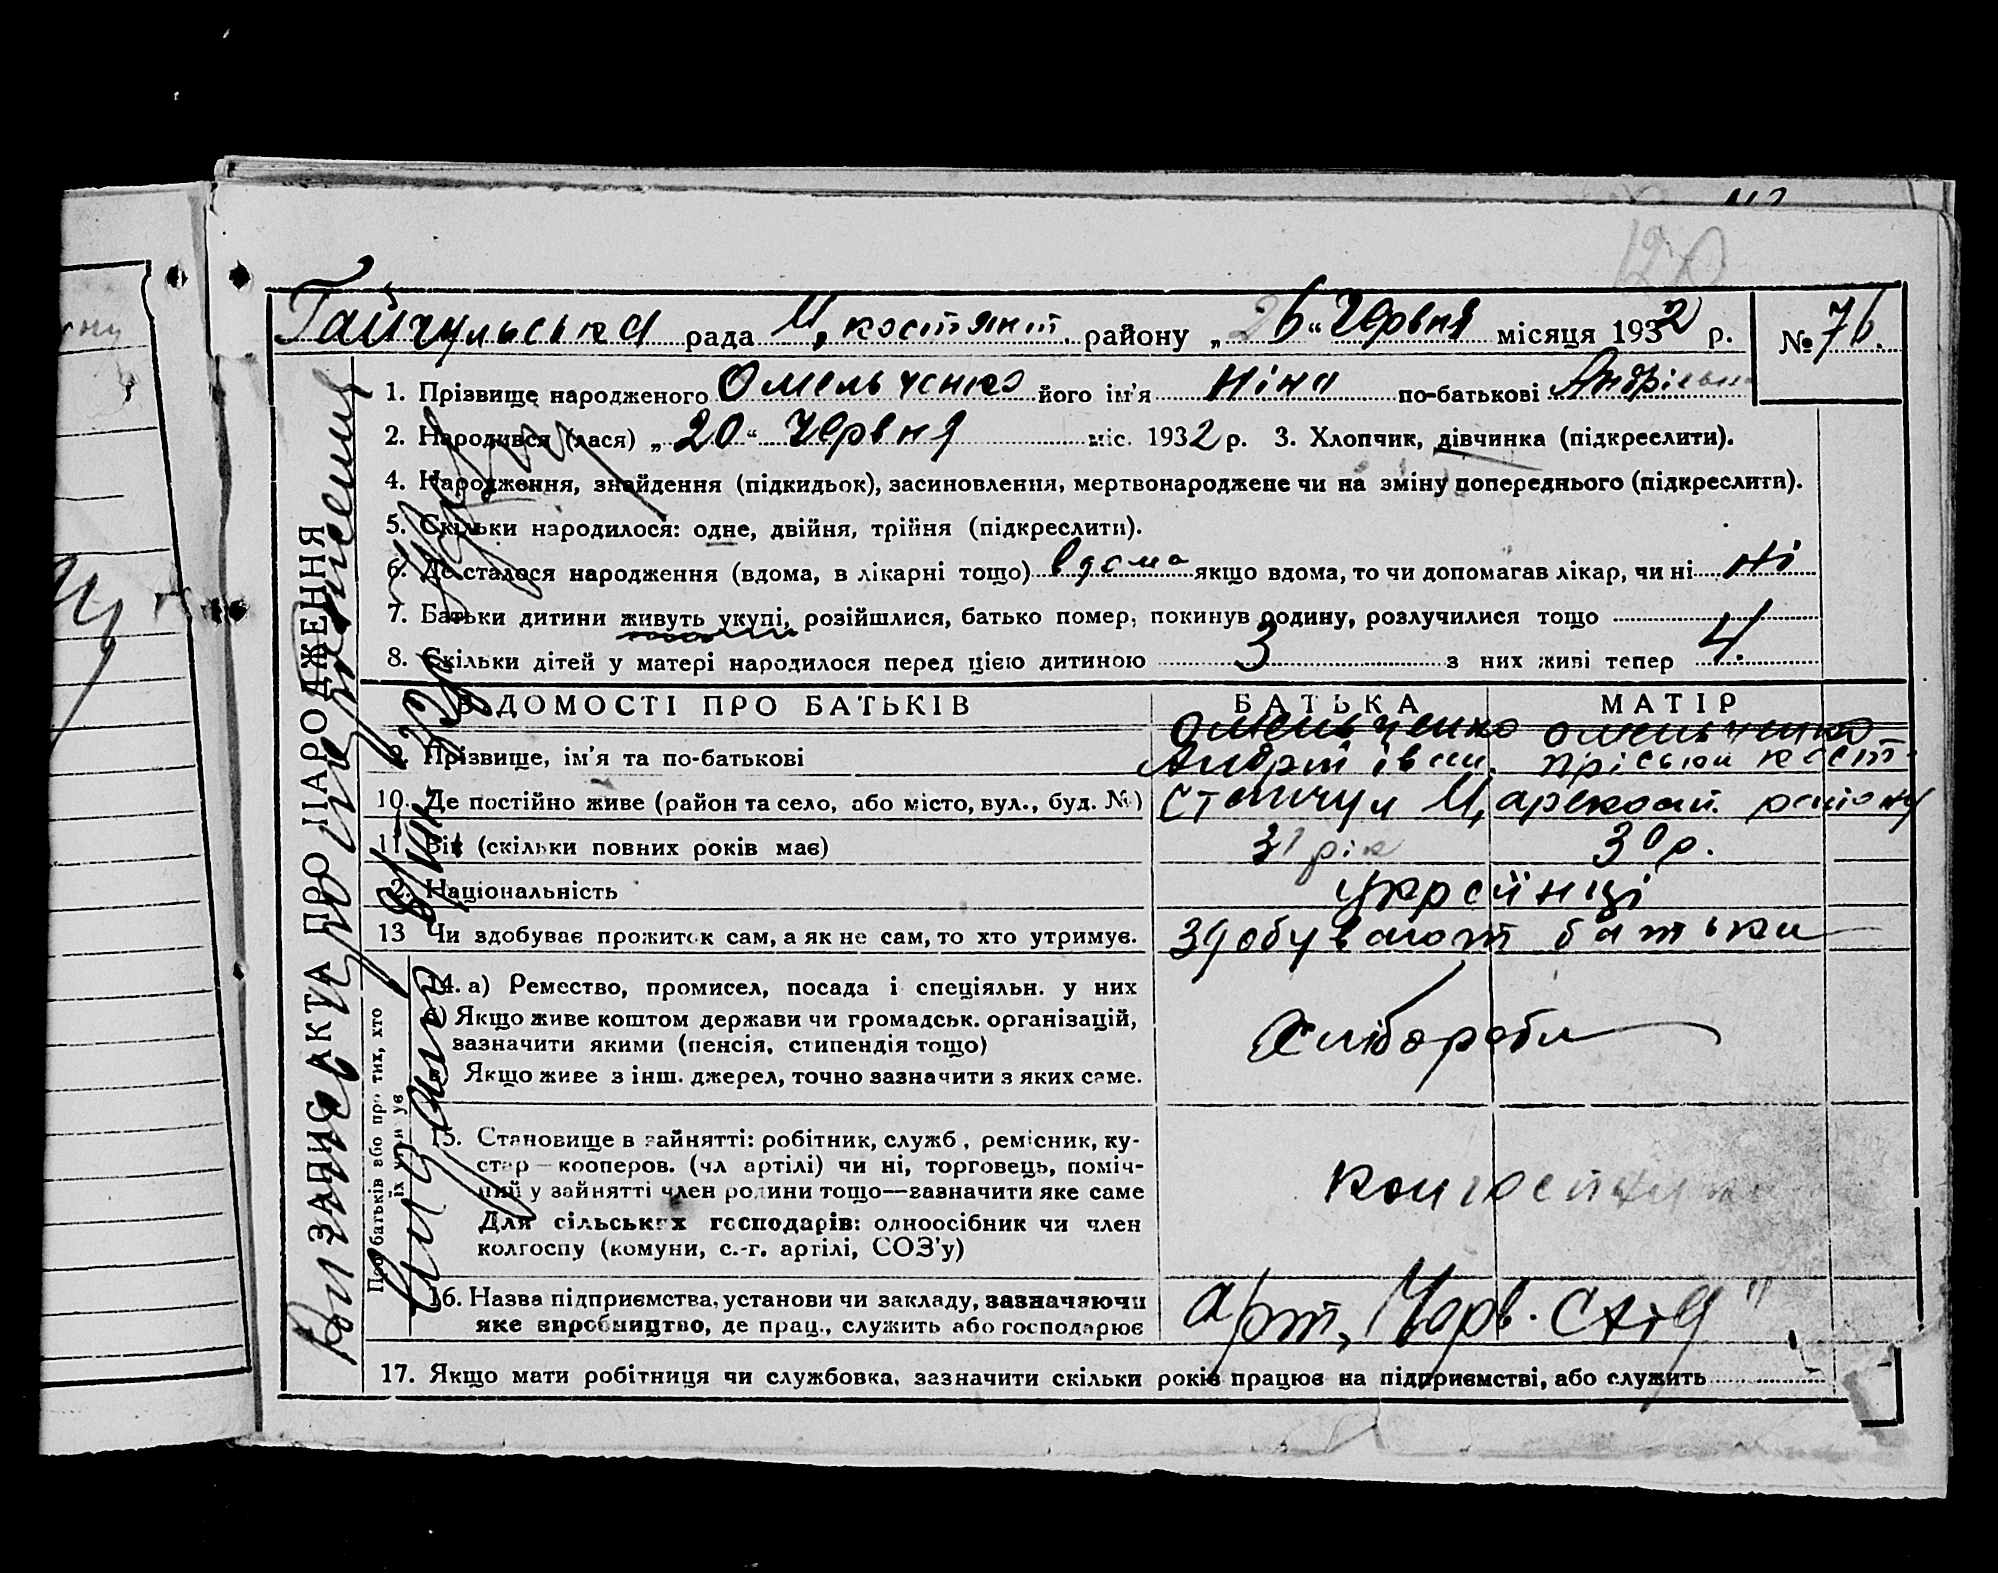 120
Гайчульська рада М, костянт. району „26“ Червня місяця 1932 р. № 76.
1. Прізвище народженого Омельченко його ім'я Ніна по-батькові Андрієвна
2. Народився (лася) „20“ Червня міс. 1932 р. 3. Хлопчик, дівчинка (підкреслити).
4. Народження, знайдення (підкидьок), засиновлення, мертвонароджене чи на зміну попереднього (підкреслити).
5. Скільки народилося: одне, двійня, трійня (підкреслити).
6. Де сталося народження (вдома, в лікарні тощо) вдома якщо вдома, то чи допомагав лікар, чи ні ні
7. Батьки дитини живуть укупі, розійшлися, батько помер, покинув родину, розлучилися тощо
8. Скільки дітей у матері народилося перед цією дитиною 3 з них живі тепер 4.
ВІДОМОСТІ ПРО БАТЬКІВ БАТЬКА МАТІР
Омельченко Омельченко
9. Прізвище, ім'я та по-батькові Андрій Іван. Пріська Кост.
10. Де постійно живе (район та село, або місто, вул., буд. №) району
11. Вік (скільки повних років має) 31 рік 30 р.
12. Національність Українці
13 Чи здобуває прожиток сам, а як не сам, то хто утримує. Здобувают батьки
14. а) Ремество, промисел, посада і спеціяльн. у них
б) Якщо живе коштом держави чи громадськ. організацій,
зазначити якими (пенсія, стипендія тощо)
в) Якщо живе з інш. джерел, точно зазначити з яких саме.
Хлібороби
15. Становище в зайнятті: робітник, служб., ремісник, ку-
стар—кооперов. (чл артілі) чи ні, торговець, поміч-
ний у зайнятті член родини тощо—зазначити яке саме
Для сільських господарів: одноосібник чи член
колгоспу (комуни, с.-г. артілі, СОЗ'у)
16. Назва підприємства, установи чи закладу, зазначаючи
яке виробництво, де прац., служить або господарює
арт, Черв. Стяг"
17. Якщо мати робітниця чи службовка, зазначити скільки років працює на підприємстві, або служить
ЗАПИС АКТА ПРО НАРОДЖЕННЯ
Про батьків або про тих, хто
їх утримує